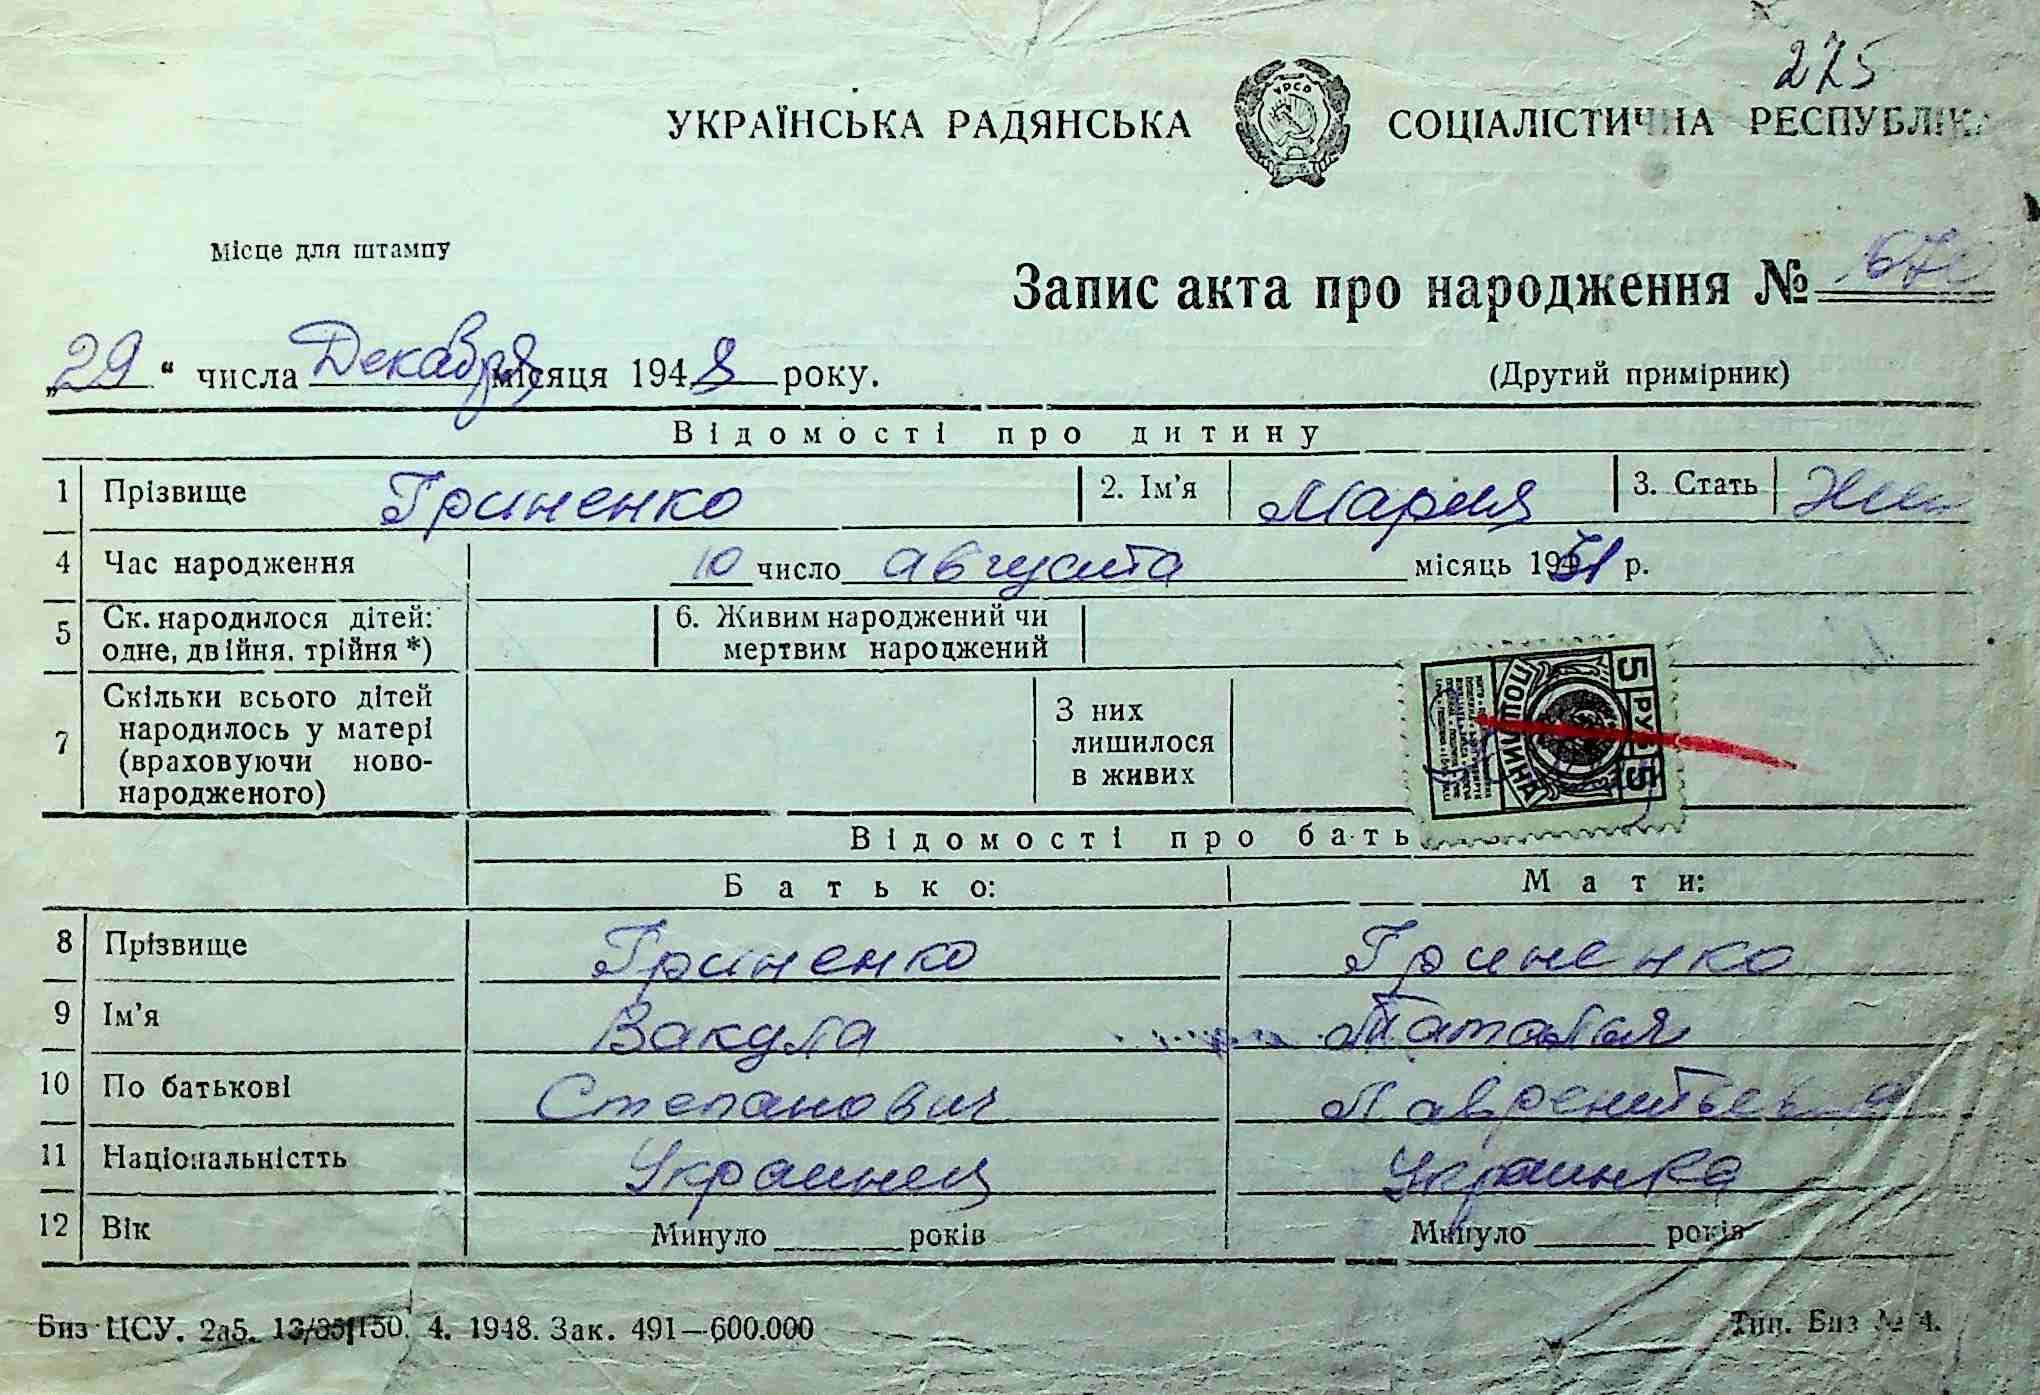 275
УКРАЇНСЬКА РАДЯНСЬКА СОЦІАЛІСТИЧНА РЕСПУБЛІКА
УРСР
Місце для штампу
Запис акта про народження № 670
„29“ числа Декабря місяця 1948 року.
(Другий примірник)
Відомості про дитину
1 Прізвище Гриненко 2. Ім'я Мария 3. Стать Жен
4 Час народження 10 число августа місяць 1931 р.
5 Ск. народилося дітей: одне, двійня, трійня *) 6. Живим народжений чи мертвим народжений
7 Скільки всього дітей народилось у матері (враховуючи новонародженого) З них лишилося в живих
5 РУБ 5
ПОШЛИНА
Відомості про бать
Батько: Мати:
8 Прізвище Гриненко Гриненко
9 Ім'я Вакула Наталья
10 По батькові Степанович Лаврентьевна
11 Національністть Украинец Украинка
12 Вік Минуло ____ років Минуло ____ років
Биз ЦСУ. 2а5. 13/35 150. 4. 1948. Зак. 491—600.000
Тип. Биз № 4.